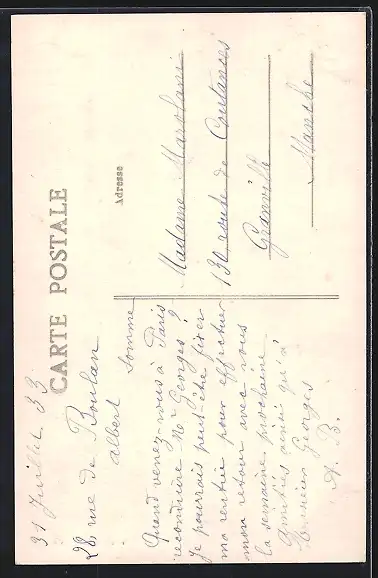 CARTE POSTALE
31 Juillet 33
28 rue de Boulan
albert
Somme
Quand venez-vous à Paris
reconduire Mr Georges ?
Je pourrais peut-être fixer
ma rentrée pour effectuer
mon retour avec vous
la semaine prochaine
Amitiés ainsi qu'à
Monsieur Georges
A. B.
Adresse
Madame Marolani
130 route de Coutances
Granville
Manche